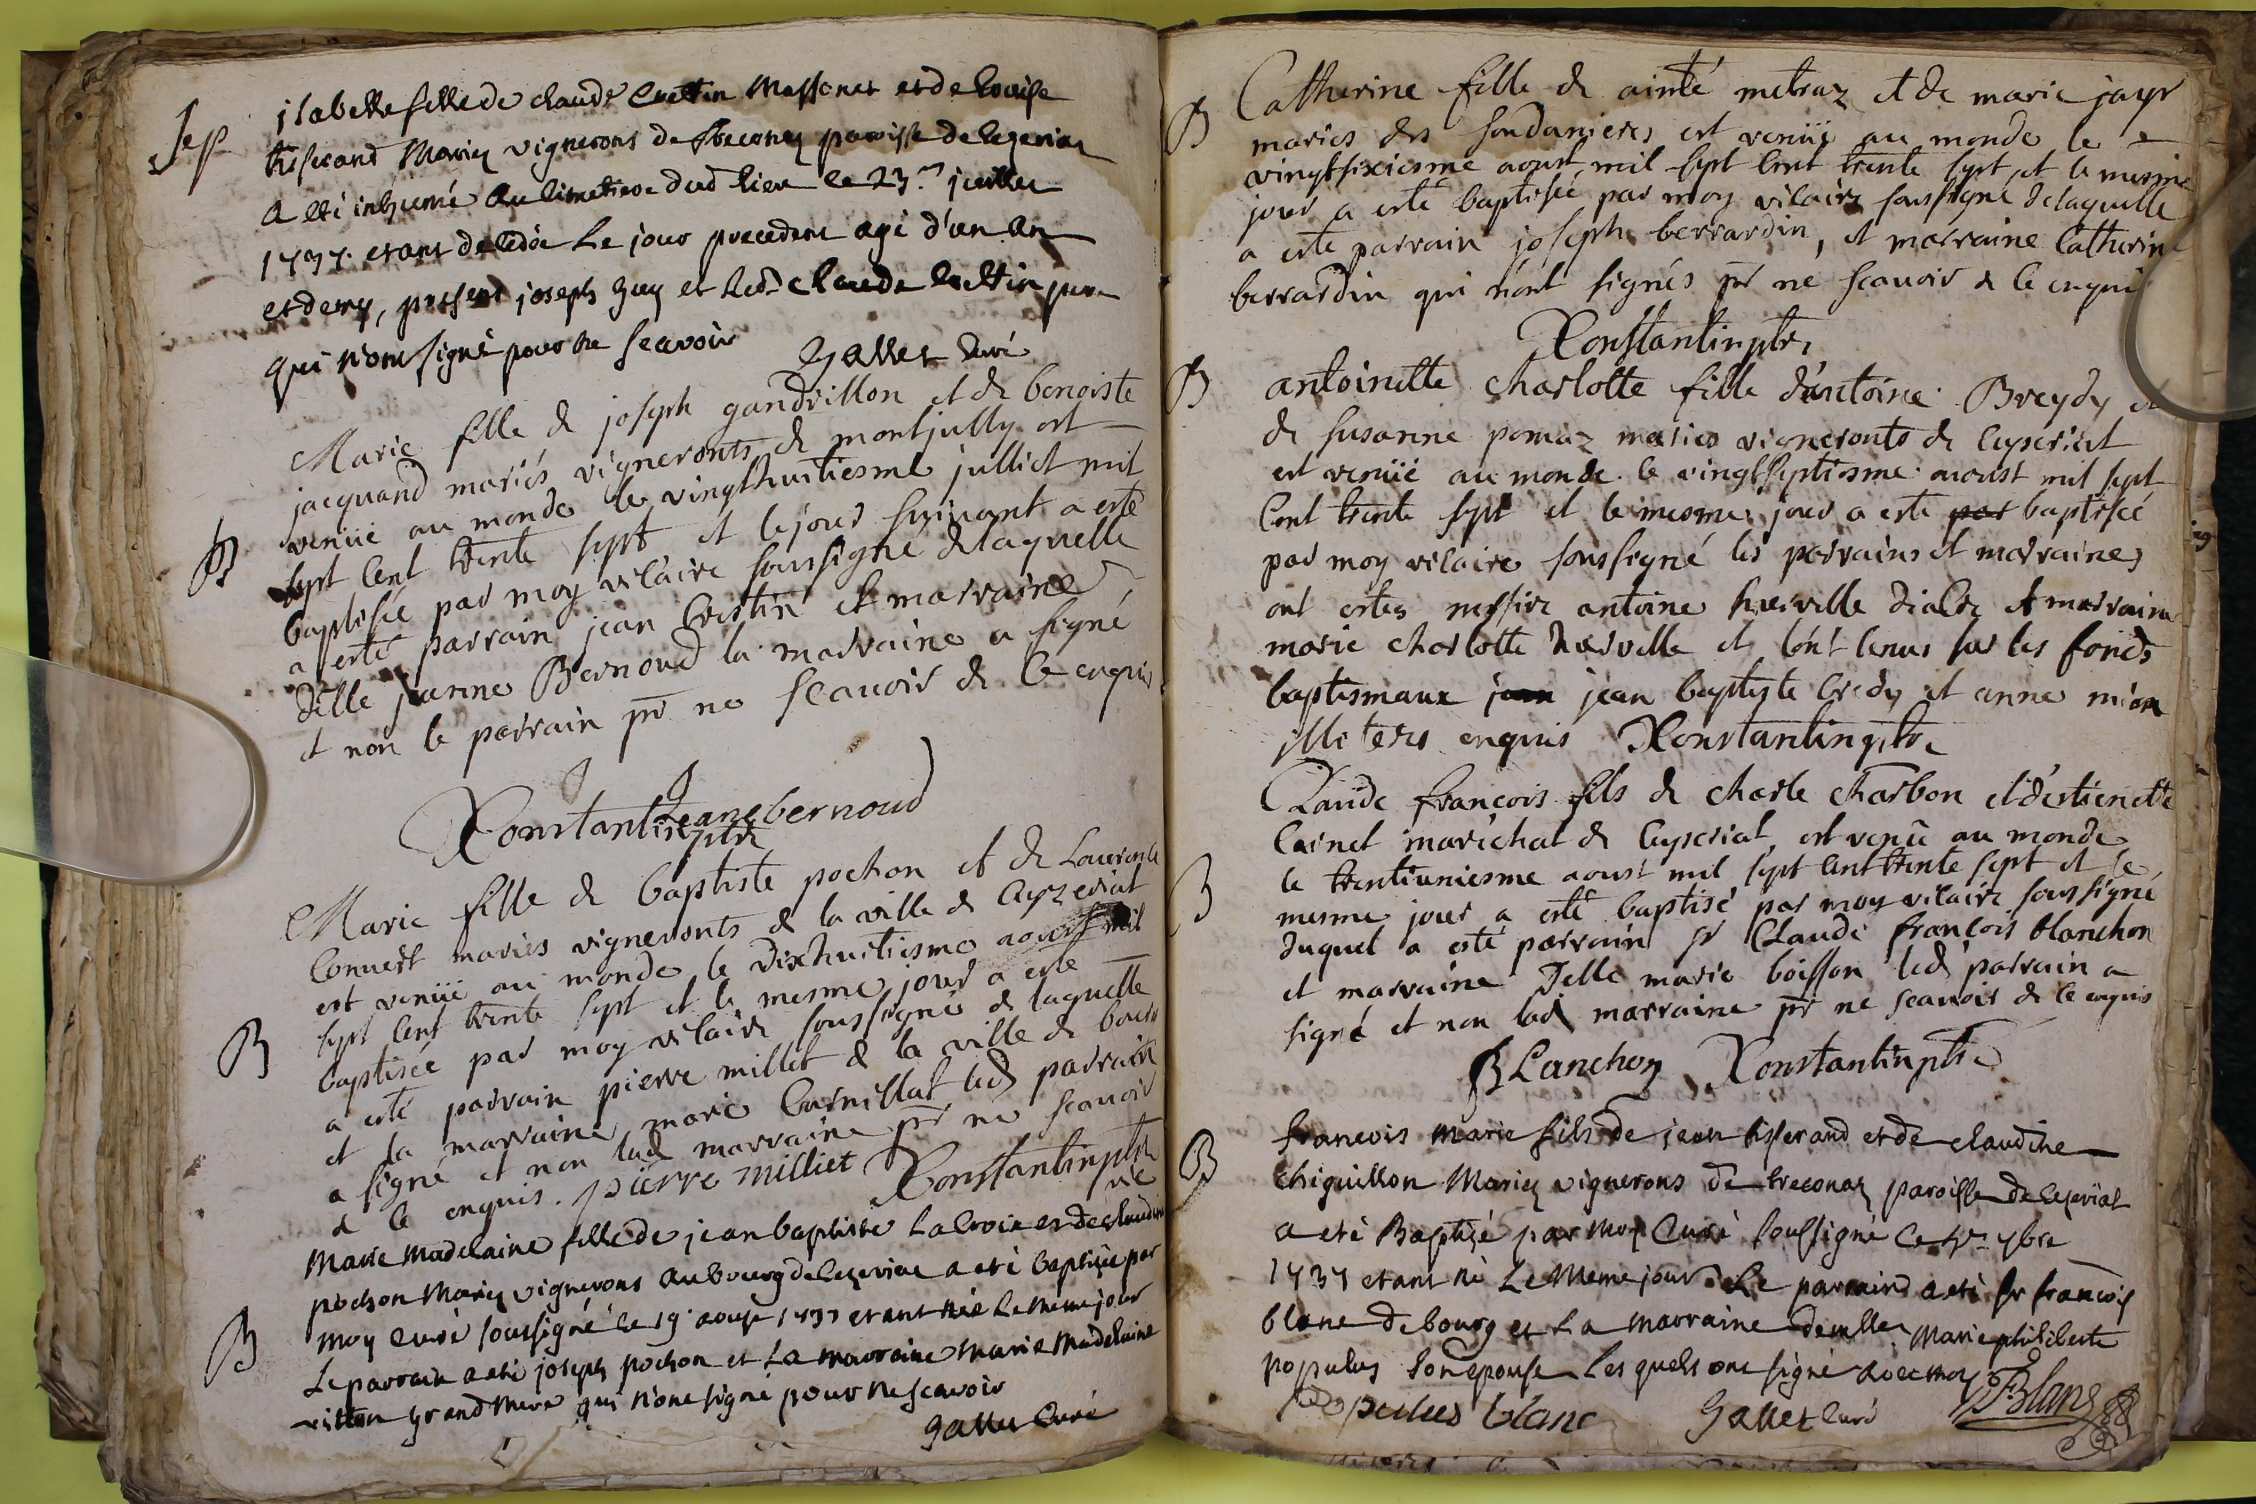 Sep
isabelle fille de claude Cuettin Massonet et de Louise
tisserand Mariez vignerons de treconaz paroisse de Cezeriat
a eté inhumé au cimetiere dud lieu le 23.e juillet
1737. etant decedée Le jour precedent agé d'un an
et demy, present joseph Guy et led. claude Cuettin pere
qui n'ont signé pour ne scavoir
Gallet Curé
B
Marie fille de joseph gandrillon et de benoiste
jacquand mariés vigneronts de montjully est
venüe au monde le vingthuitiesme julliet mil
sept Cent trente sept et le jour suivant a esté
baptisée par moy vicaire soussigné de laquelle
a esté parrain jean Crestin et marraine
delle jeanne Bernoud la marraine a signé
et non le parrain pr ne scavoir de Ce enquis
Jeane bernoud
Constantin ptre
B
Marie fille de baptiste pochon et de Laurence
Convert mariés vigneronts de la ville de Ceyzeriat
est venüe au monde le dixhuitiesme aoust mil
sept Cent trente sept et le mesme jour a esté
baptisée par moy vicaire soussigné de laquelle
a esté parrain pierre millet de la ville de bourg
et la marraine marie Curnillat led parrain
a signé et non lad marraine pr ne scavoir
de Ce enquis. pierre milliet Constantin ptre
B
Marie Madelaine fille de jean baptiste La Croix et de claudine
pochon Mariez vignerons au bourg de Cezeriat a eté baptizée par
moy Curé soussigné le 19 aoust 1737 etant née le meme jour
Le parrain a eté joseph pochon et La marraine Marie Madelaine
grand mere qui n'ont signé pour ne scavoir
Gallet Curé
B
Catherine fille de aimé metraz et de marie jayr
mariés des soudanieres est venüe au monde le
vingtsixiesme aoust mil sept Cent trente sept, et le mesme
jour a esté baptisée par moy vicaire soussigné de laquelle
a esté parrain joseph berrardin, et marraine Catherine
berrardin qui n'ont signés pr ne scavoir de Ce enquis
Constantin ptre
B
antoinette charlotte fille d'antoine Breydy et
de susanne pomaz mariés vigneronts de Ceyseriat
est venüe au monde le vingtseptiesme aoust mil sept
Cent trente sept et le mesme jour a esté par baptisée
par moy vicaire soussigné les parrains et marraines
ont estez messire antoine et marraine
marie charlotte et l'ont tenus sur les fonds
baptismaux jean jean baptiste Credy et anne
illeterés enquis Constantin ptre
B
Claude françois fils de charle charbon et d'estienette
Carnet maréchal de Ceyseriat est venü au monde
le trentiuniesme aoust mil sept Cent trente sept et le
mesme jour a esté baptisé par moy vicaire soussigné
duquel a esté parrain sr Claude françois blanchon
et marraine Delle marie boisson led parrain a
signé et non lad marraine pr ne scavoir de Ce enquis
BLanchon Constantin ptre
B
francois marie fils de jean tisserand et de claudine
chiquillon Mariez vignerons de treconaz paroisse de Cezeriat
a eté Baptizé par Moy Curé soussigné Ce 7bre
1737 etant né Le Meme jour Le parrain a eté sr francois
blanc de bourg et La marraine demlle Marie philiberte
populus son epouse Les quels ont signé avec moy
Populus blanc Gallet Curé Blanc